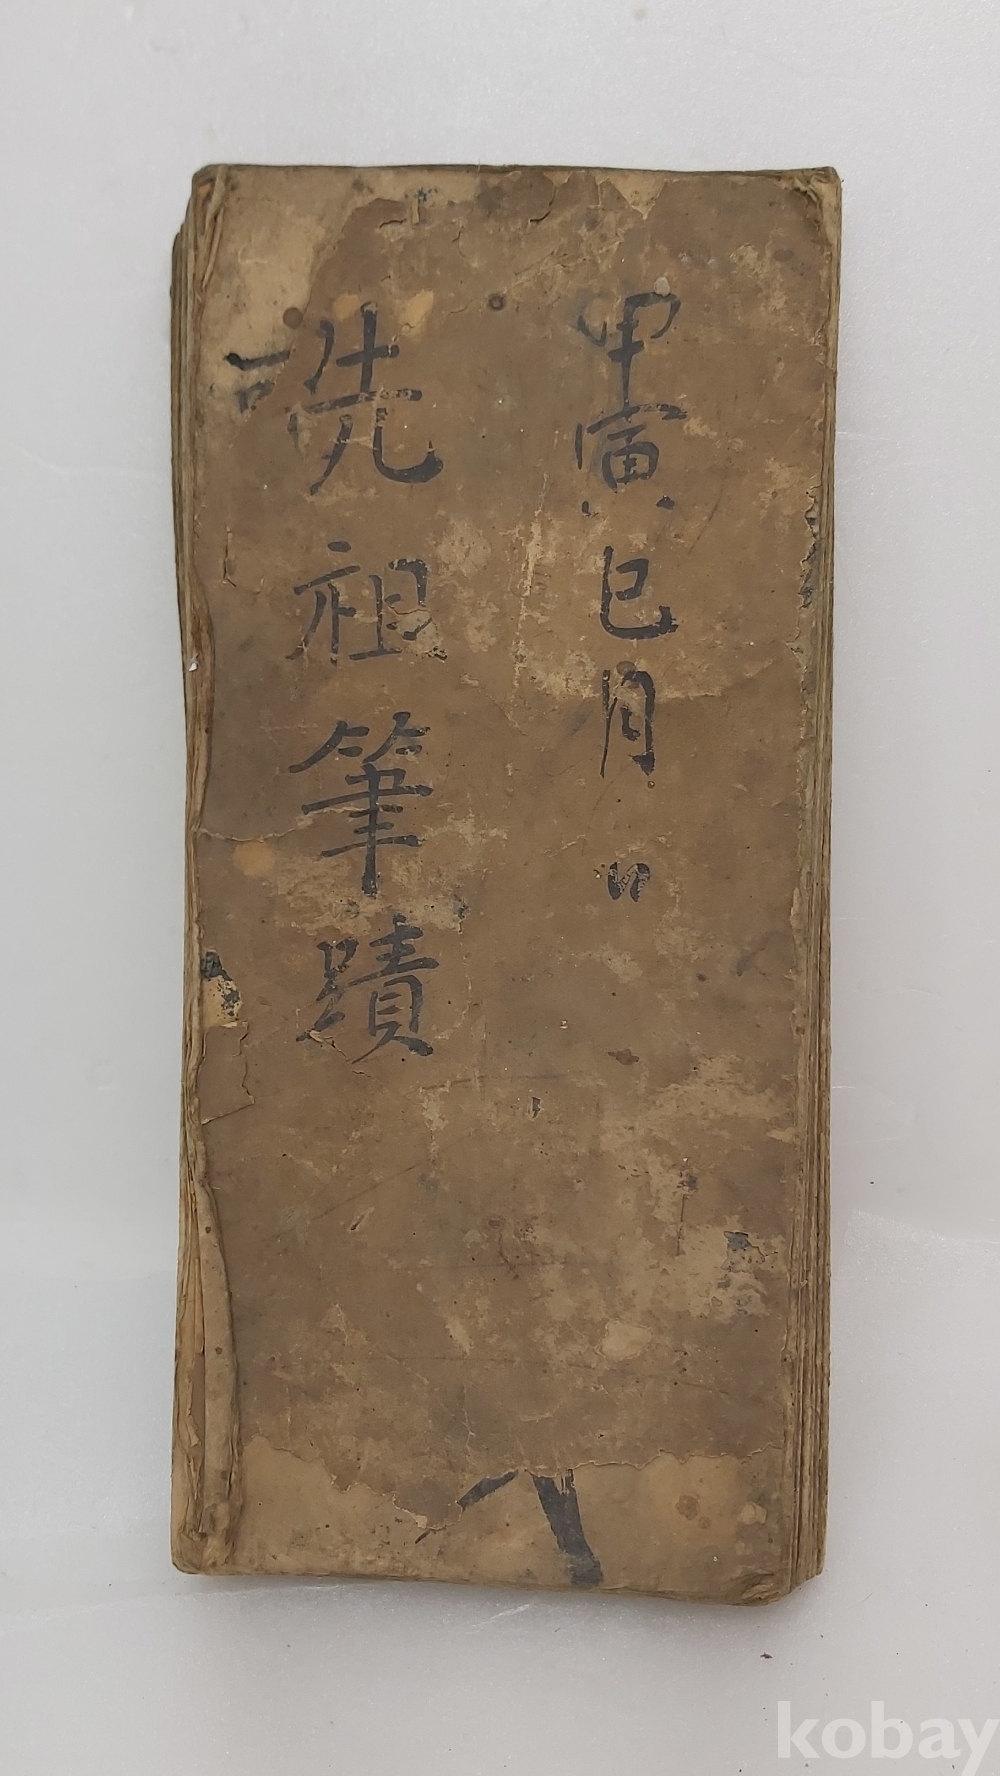 甲寅巳月
先祖筆蹟
kobay